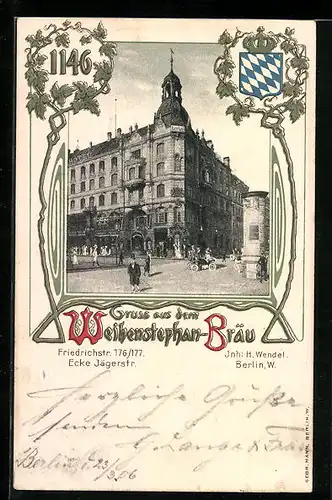 1146
Gruss aus dem
Weihenstephan-Bräu
Friedrichstr. 176/177.
Ecke Jägerstr.
Jnh: H. Wendel.
Berlin, W.
Herzliche Grüße
senden
Berlin 23/3 06
GEBR. MANN, BERLIN, W.